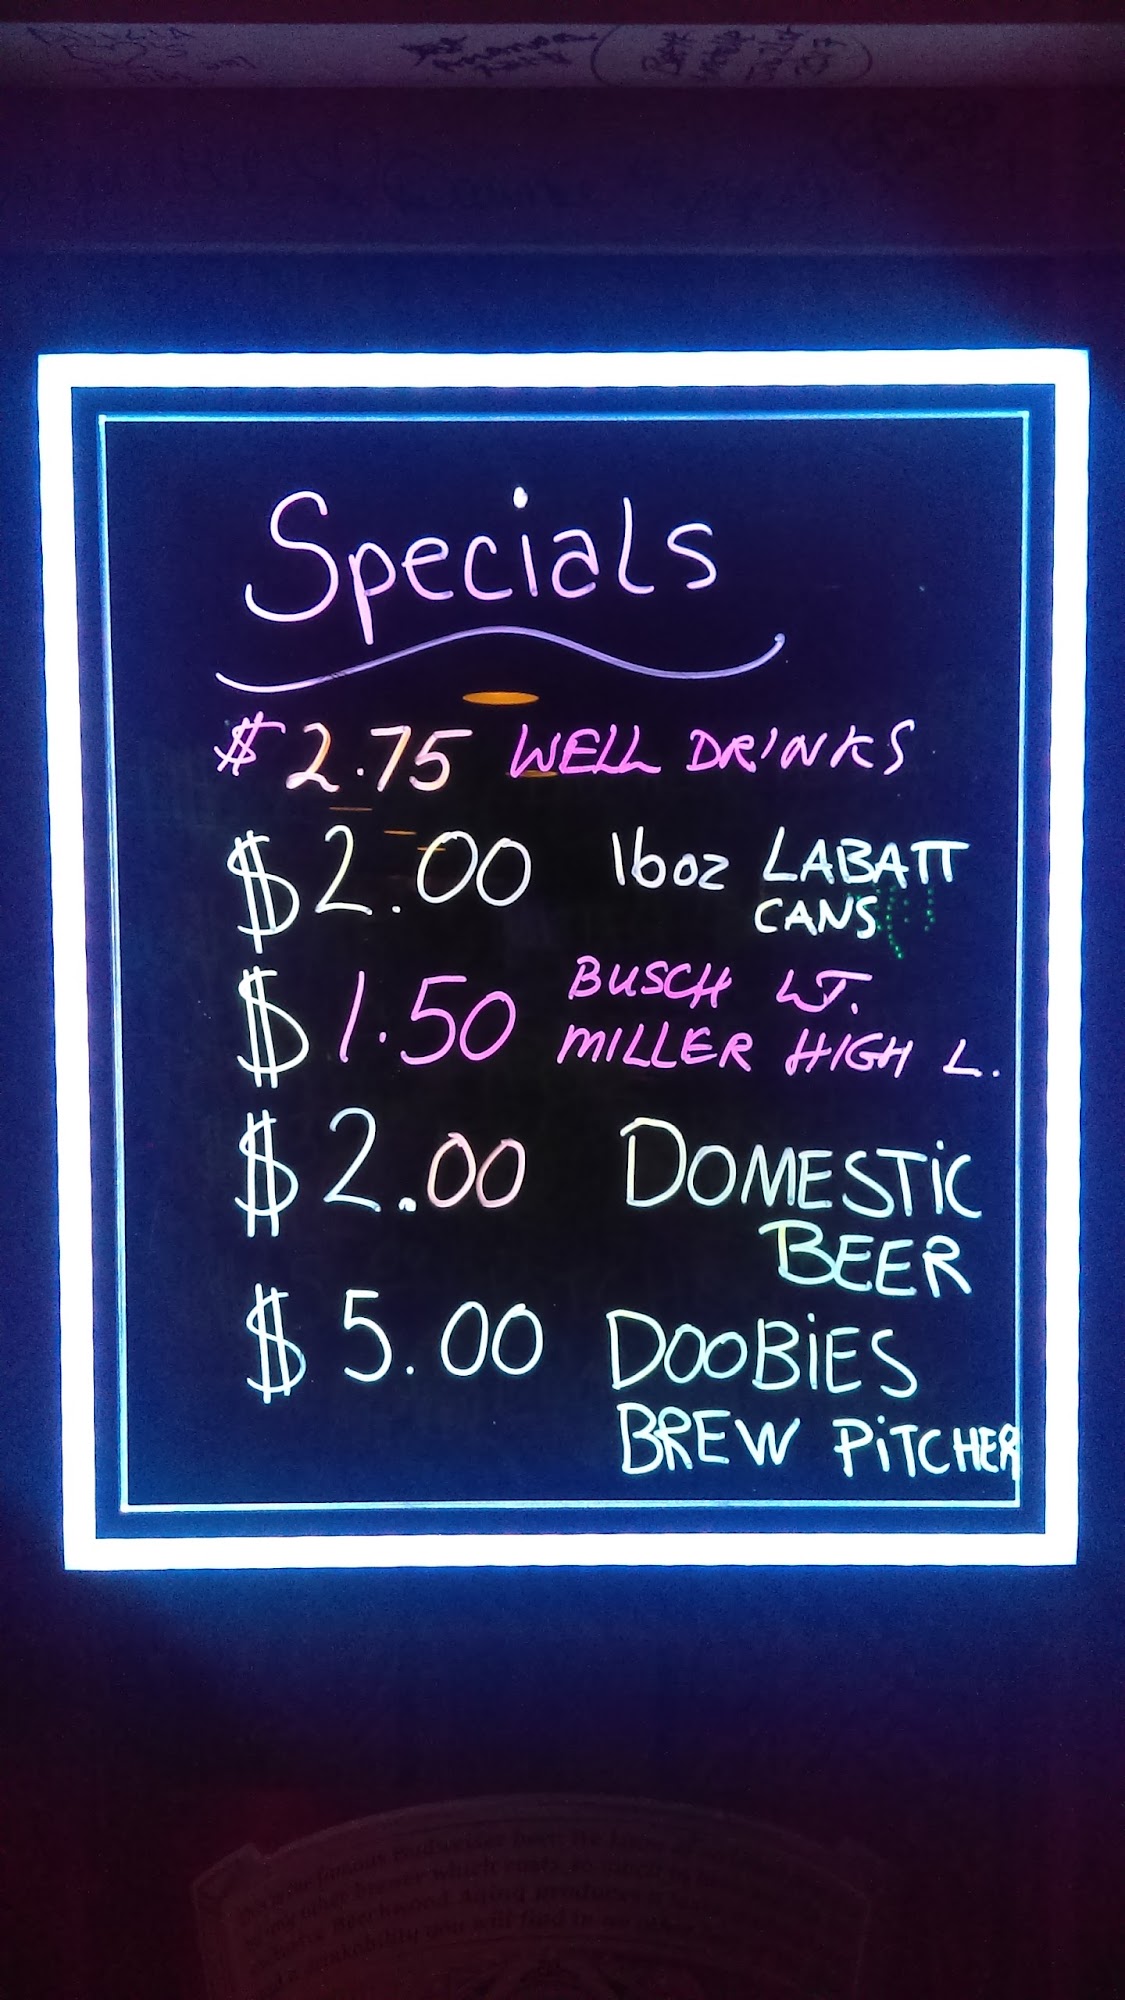 Specials
$2.75 WELL DRINKS
$2.00 16oz LABATT
CANS
$1.50 BUSCH LT.
MILLER HIGH L.
$2.00 DOMESTIC
BEER
$5.00 DOOBIES
BREW PITCHER